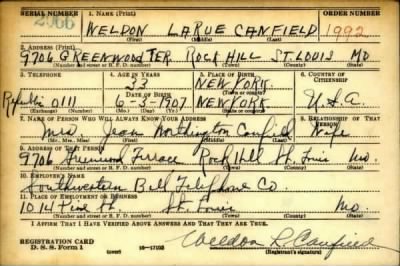 SERIAL NUMBER 1. NAME (Print) ORDER NUMBER
2966 WELDON LARUE CANFIELD 1992
(First) (Middle) (Last)
2. ADDRESS (Print)
9706 GREENWOOD TER. ROCK HILL ST. LOUIS MO
(Number and street or R. F. D. number) (Town) (County) (State)
3. TELEPHONE 4. AGE IN YEARS 5. PLACE OF BIRTH 6. COUNTRY OF CITIZENSHIP
33 NEW YORK
DATE OF BIRTH (Town or county)
Republic 0111 6-3-1907 NEW YORK U.S.A.
(Exchange) (Number) (Mo.) (Day) (Yr.) (State or country)
7. NAME OF PERSON WHO WILL ALWAYS KNOW YOUR ADDRESS 8. RELATIONSHIP OF THAT PERSON
Mrs. Jean Worthington Canfield Wife
(Mr., Mrs., Miss) (First) (Middle) (Last)
9. ADDRESS OF THAT PERSON
9706 Greenwood Terrace Rock Hill St. Louis Mo.
(Number and street or R. F. D. number) (Town) (County) (State)
10. EMPLOYER'S NAME
Southwestern Bell Telephone Co.
11. PLACE OF EMPLOYMENT OR BUSINESS
1014 Pine St. St. Louis Mo.
(Number and street or R. F. D. number) (Town) (County) (State)
I AFFIRM THAT I HAVE VERIFIED ABOVE ANSWERS AND THAT THEY ARE TRUE.
REGISTRATION CARD
D. S. S. Form 1 Weldon L. Canfield
(Registrant's signature)